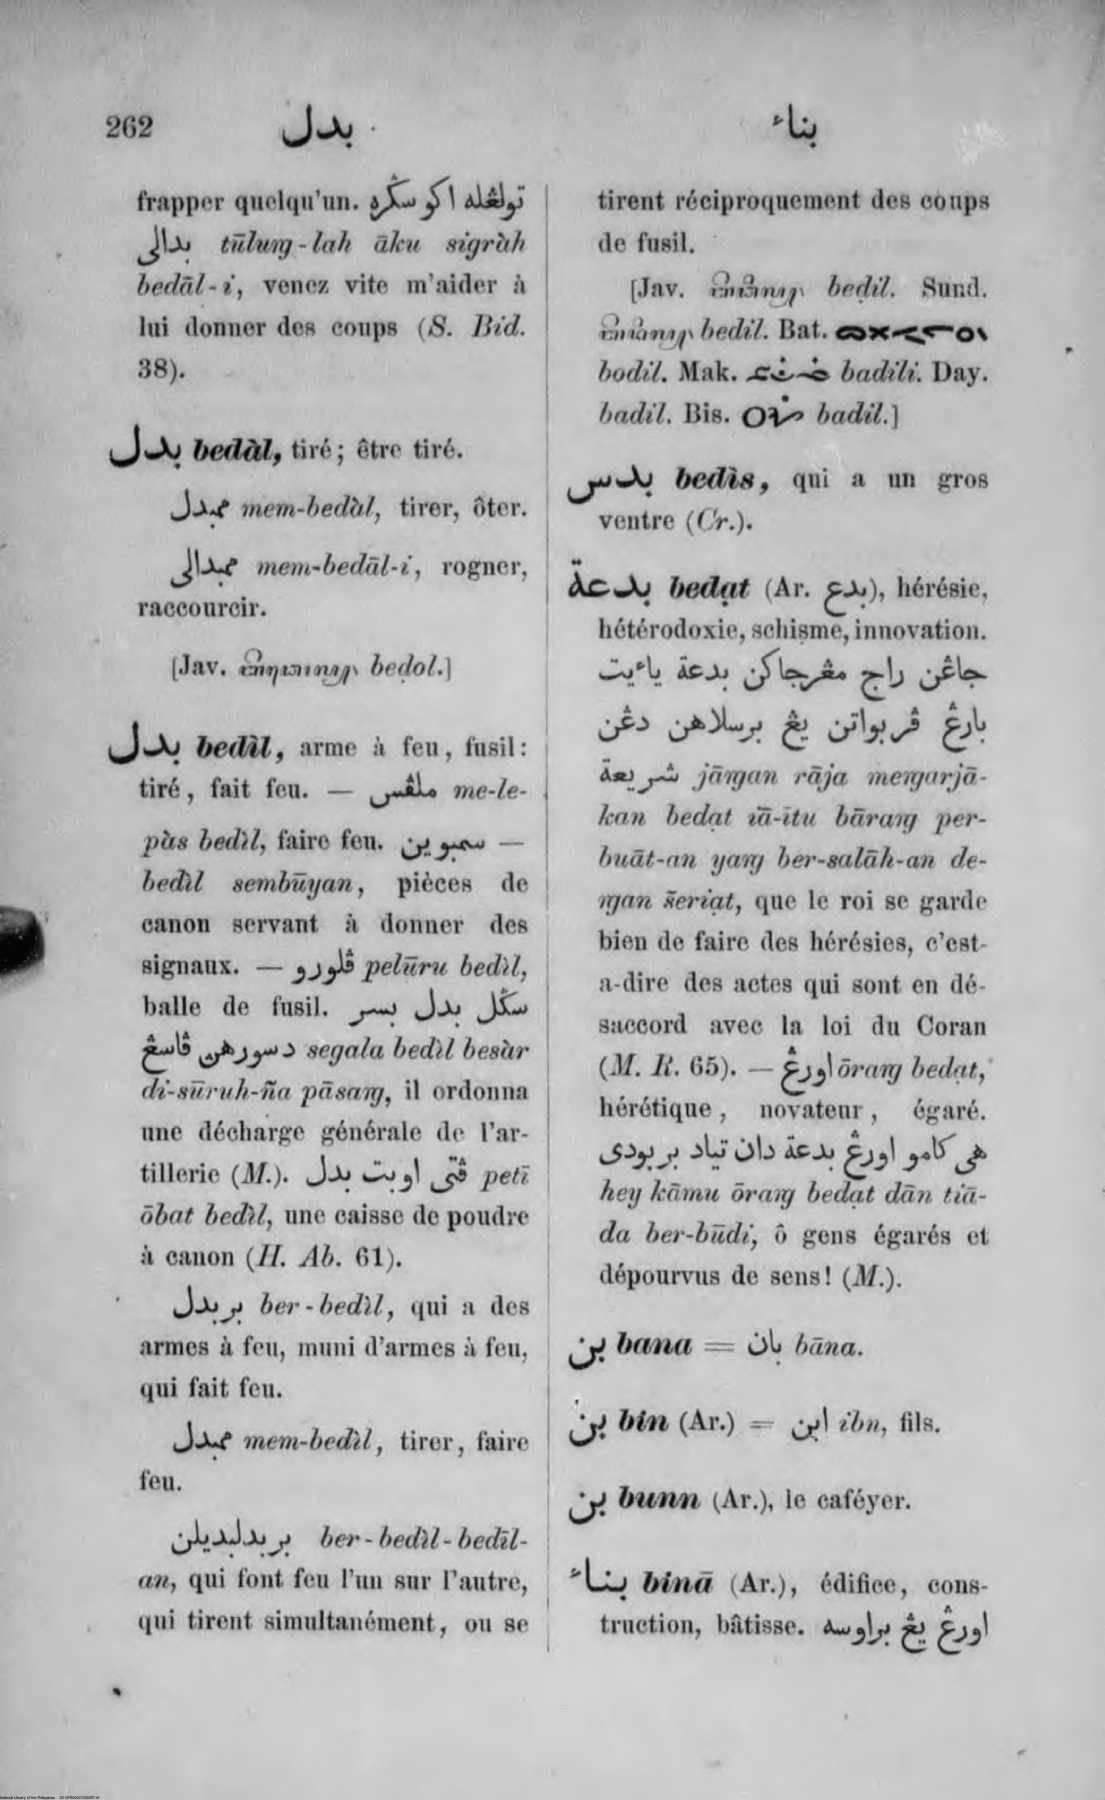 262
بدل
بناء
frapper quelqu'un. تولڠله اكو سڬره
بدالى tūluŋ-lah āku sigràh
bedāl-i, venez vite m'aider à
lui donner des coups (S. Bid.
38).
بدل bedàl, tiré; être tiré.
ممبدل mem-bedàl, tirer, ôter.
ممبدالى mem-bedāl-i, rogner,
raccourcir.
[Jav. beḍol.]
بدل bedìl, arme à feu, fusil:
tiré, fait feu. — ملڤس me-le-
pàs bedìl, faire feu. سمبوين —
bedìl sembūyan, pièces de
canon servant à donner des
signaux. — ڤلورو pelūru bedìl,
balle de fusil. سڬل بدل بسر
دسورهن ڤاسڠ segala bedìl besàr
di-sūruh-ña pāsaŋ, il ordonna
une décharge générale de l'ar-
tillerie (M.). ڤتى اوبت بدل petī
ōbat bedìl, une caisse de poudre
à canon (H. Ab. 61).
بربدل ber-bedìl, qui a des
armes à feu, muni d'armes à feu,
qui fait feu.
ممبدل mem-bedìl, tirer, faire
feu.
بربدلبديلن ber-bedìl-bedīl-
an, qui font feu l'un sur l'autre,
qui tirent simultanément, ou se
tirent réciproquement des coups
de fusil.
[Jav. beḍil. Sund.
bedil. Bat.
bodil. Mak. badili. Day.
badil. Bis. badil.]
بدس bedìs, qui a un gros
ventre (Cr.).
بدعة bedạt (Ar. بدع), hérésie,
hétérodoxie, schisme, innovation.
جاڠن راج مڠرجاكن بدعة ياءيت
بارڠ ڤربواتن يڠ برسلاهن دڠن
شريعة jāŋan rāja meŋarjā-
kan bedạt iā-ītu bāraŋ per-
buāt-an yaŋ ber-salāh-an de-
ŋan šeriạt, que le roi se garde
bien de faire des hérésies, c'est-
a-dire des actes qui sont en dé-
saccord avec la loi du Coran
(M. R. 65). — اورڠ ōraŋ bedạt,
hérétique, novateur, égaré.
هى كامو اورڠ بدعة دان تياد بربودى
hey kāmu ōraŋ bedạt dān tiā-
da ber-būdi, ô gens égarés et
dépourvus de sens! (M.).
بن bana = بان bāna.
بن bin (Ar.) = ابن ibn, fils.
بن bunn (Ar.), le caféyer.
بناء binā (Ar.), édifice, cons-
truction, bâtisse. اورڠ يڠ براوسه